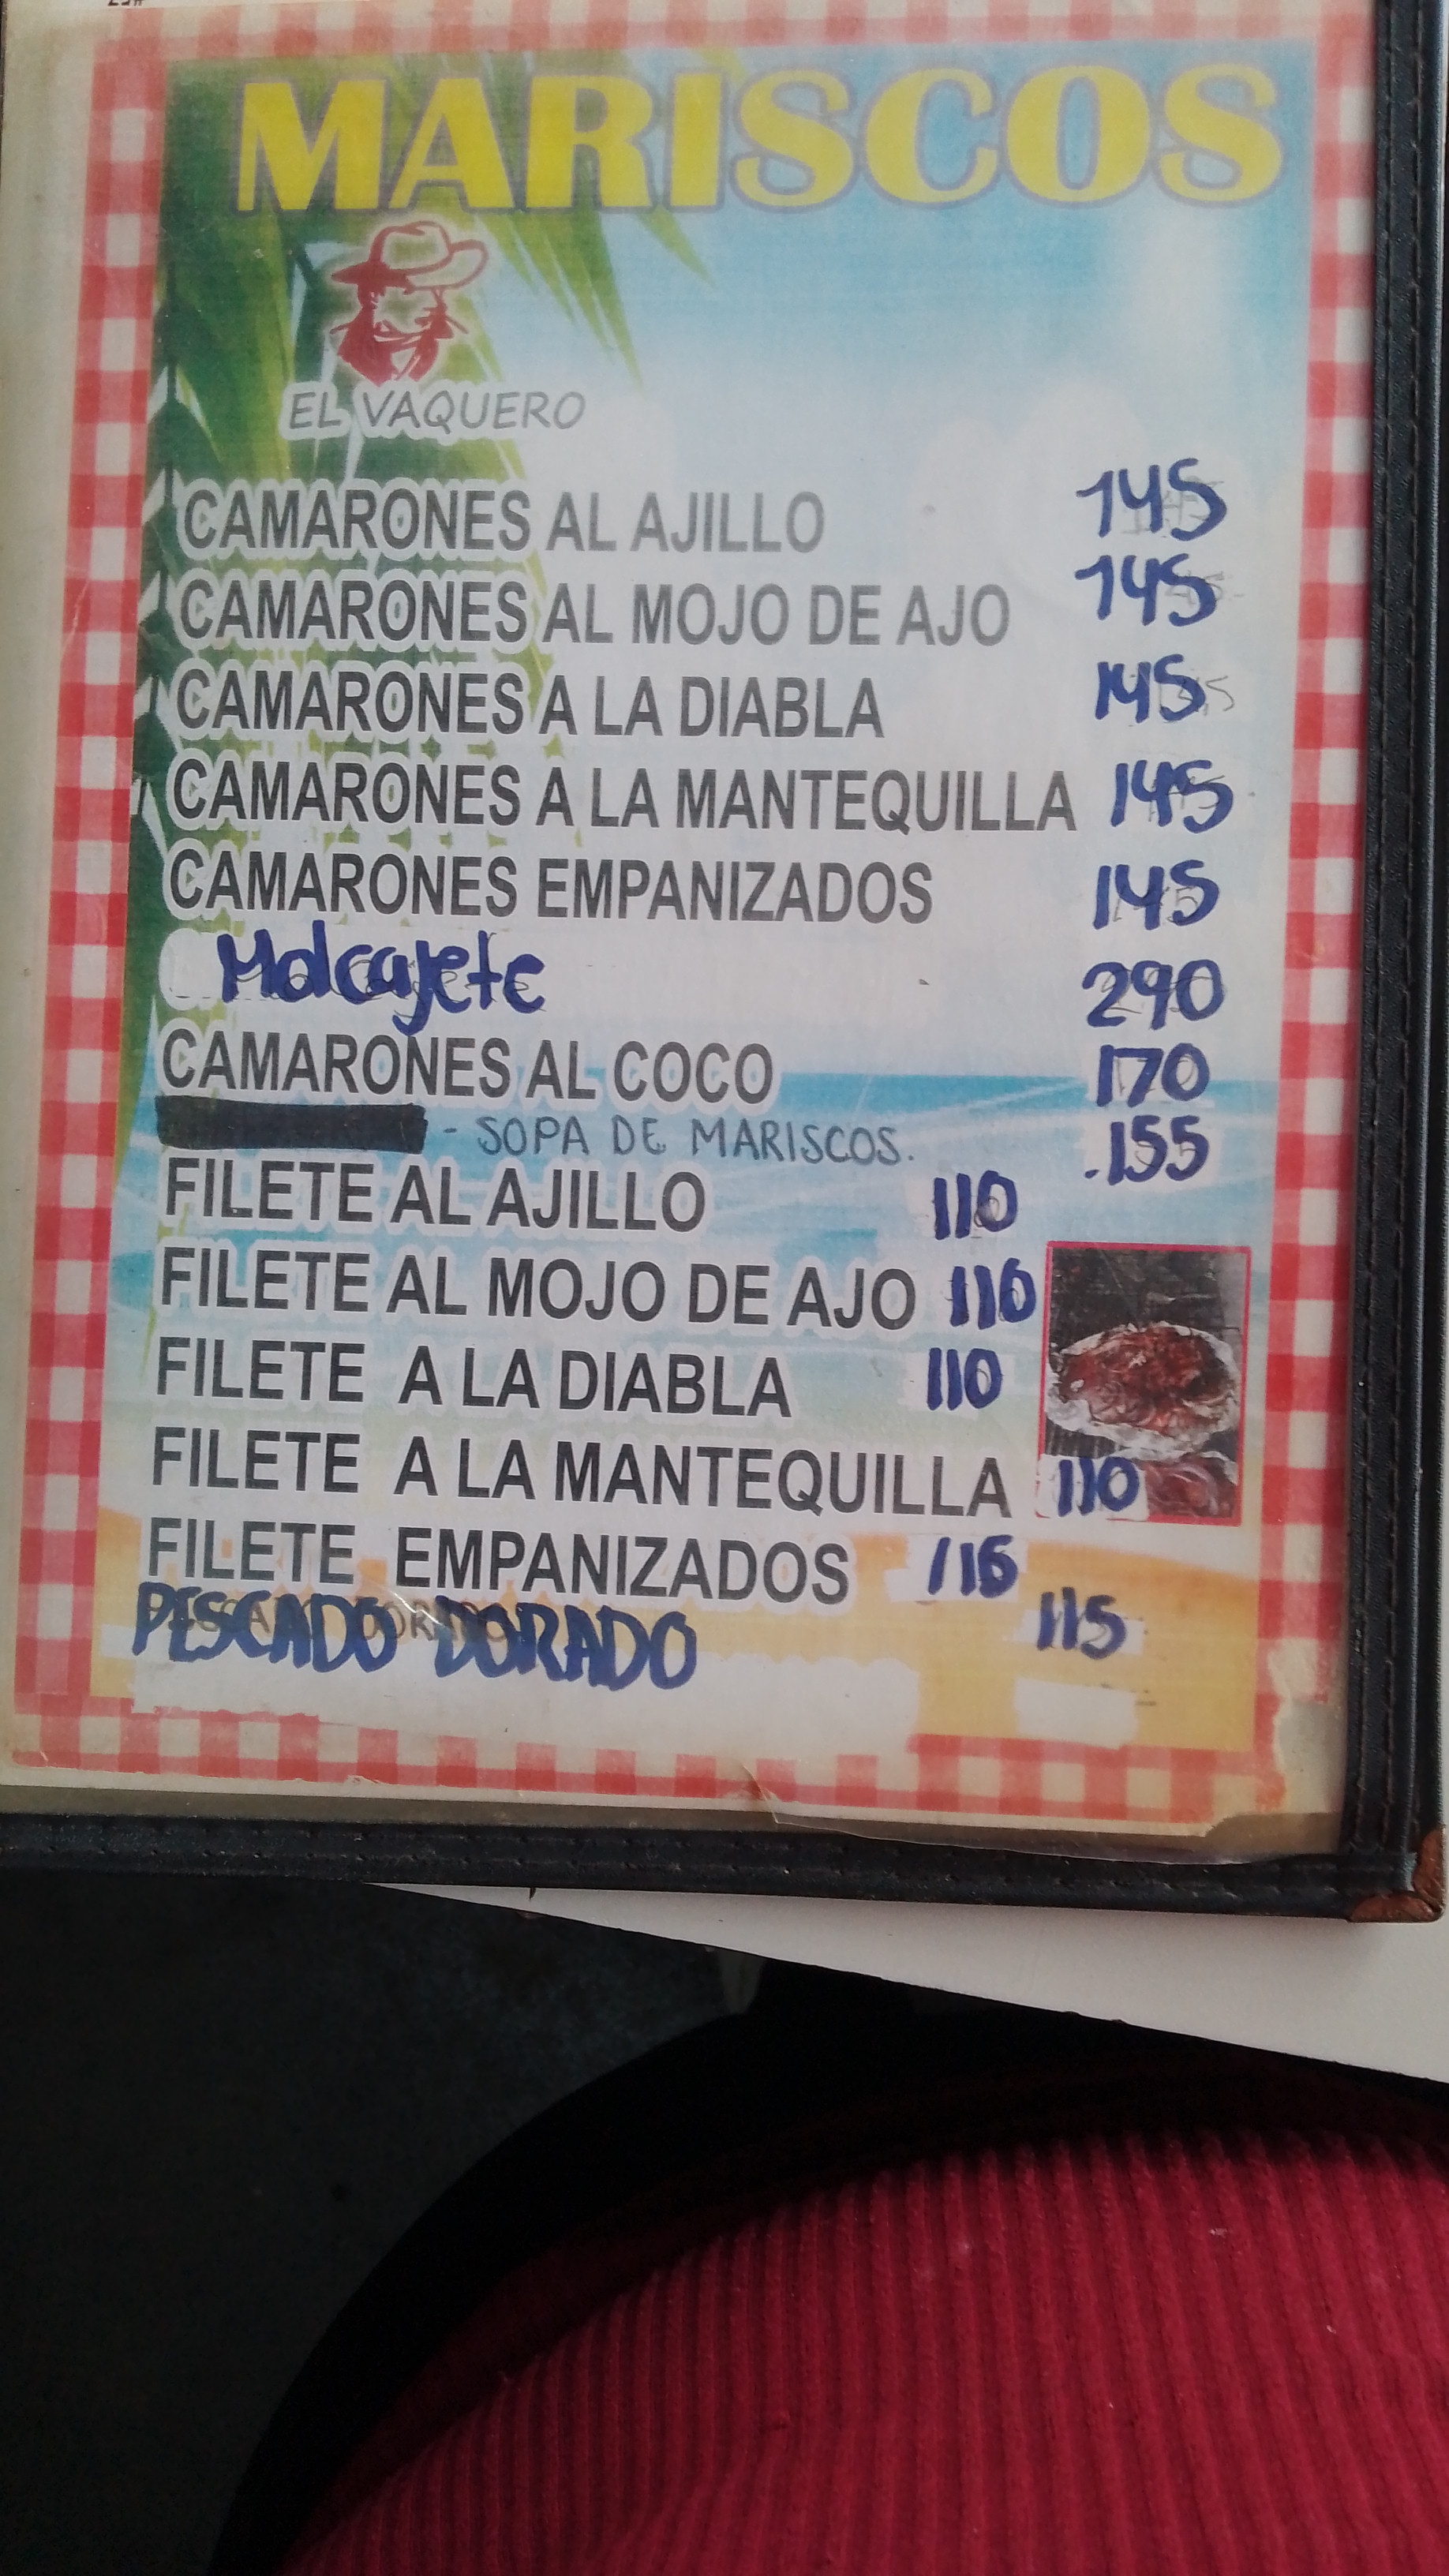 MARISCOS
EL VAQUERO
CAMARONES AL AJILLO 145
CAMARONES AL MOJO DE AJO 145
CAMARONES A LA DIABLA 145
CAMARONES A LA MANTEQUILLA 145
CAMARONES EMPANIZADOS 145
Molcajete 290
CAMARONES AL COCO 170
- SOPA DE MARISCOS. .155
FILETE AL AJILLO 110
FILETE AL MOJO DE AJO 110
FILETE A LA DIABLA 110
FILETE A LA MANTEQUILLA 110
FILETE EMPANIZADOS 110
PESCADO DORADO 115